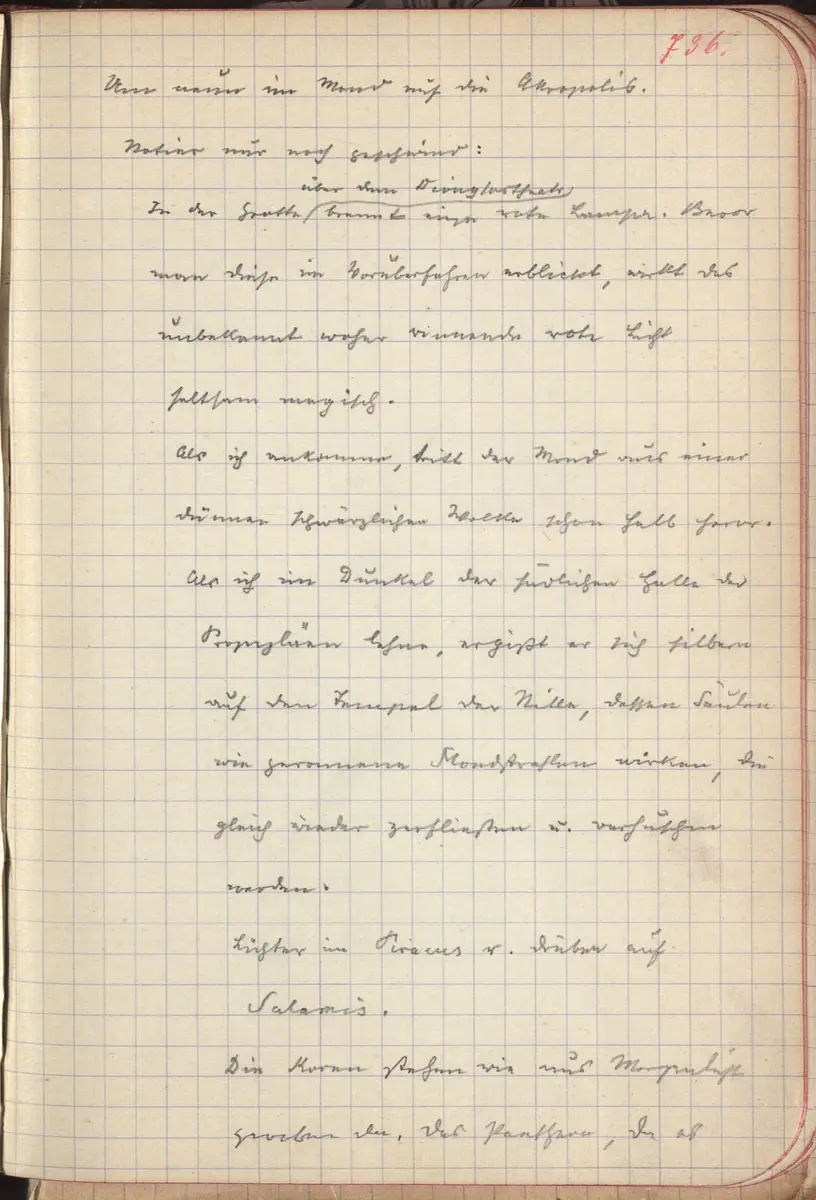 736.
Um neun im Mond auf die Akropolis.
Notier nur noch geschwind:
über dem Dionysostheater
In der Grotte brennt eine rote Lampe. Bevor
man diese im Vorüberfahren erblickt, wirkt das
unbekannt woher rinnende rote Licht
seltsam magisch.
Als ich ankomme, tritt der Mond aus einer
dünnen schwärzlichen Wolke schon halb hervor.
Als ich im Dunkel der südlichen Halle der
Propyläen lehne, ergißt er sich silbern
auf den Tempel der Nike, dessen Säulen
wie geronnene Mondstrahlen wirken, die
gleich wieder zerfließen u. verhuschen
werden.
Lichter im Piraeus u. drüben auf
Salamis.
Die Koren stehen wie aus
gewoben da. Das Pantheon, da es